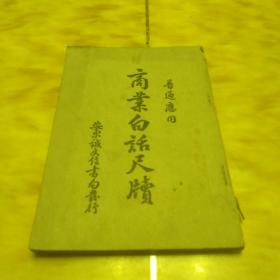 普通應用
商業白話尺牘
誠文信書局發行